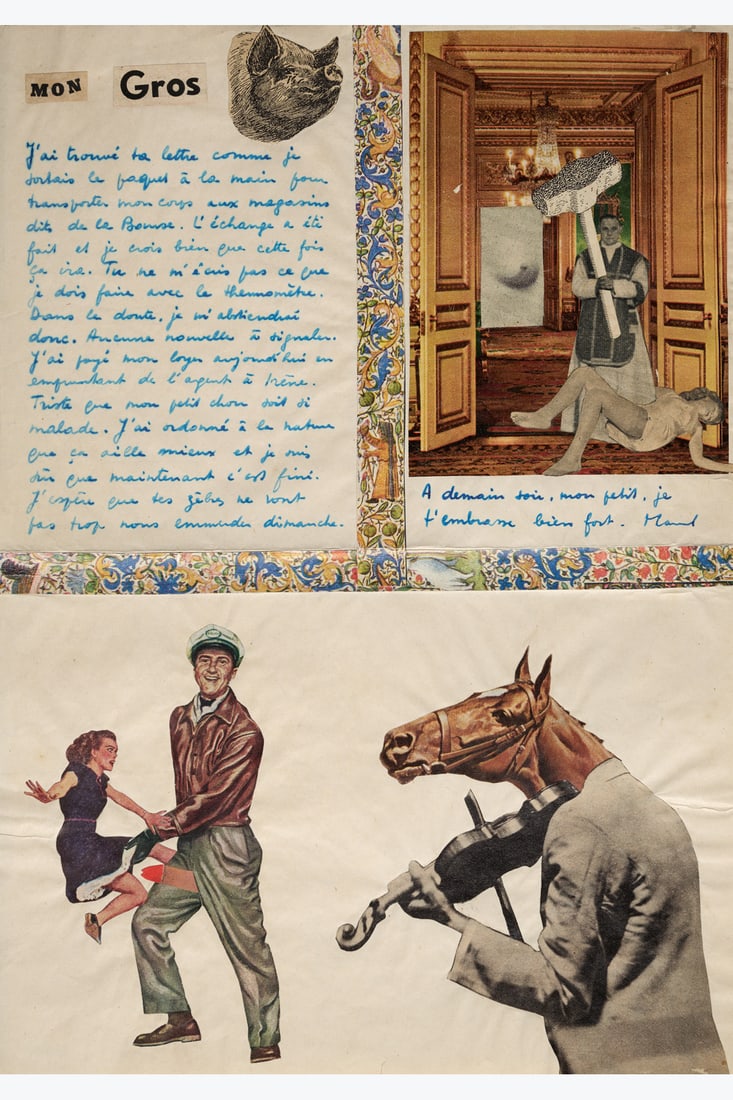 MON Gros
J'ai trouvé ta lettre comme je
sortais le paquet à la main pour
transporter mon corps aux magasins
dits de la Bourse. L'échange a été
fait et je crois bien que cette fois
ça ira. Tu ne m'écris pas ce que
je dois faire avec le thermomètre.
Dans le doute, je m'abstiendrai
donc. Aucune nouvelle à signaler.
J'ai payé mon loyer aujourd'hui en
empruntant de l'argent à Irène.
Triste que mon petit chou soit si
malade. J'ai ordonné à la nature
que ça aille mieux et je suis
sûr que maintenant c'est fini.
J'espère que tes gèbes ne vont
pas trop nous emmerder dimanche.
A demain soir, mon petit, je
t'embrasse bien fort.